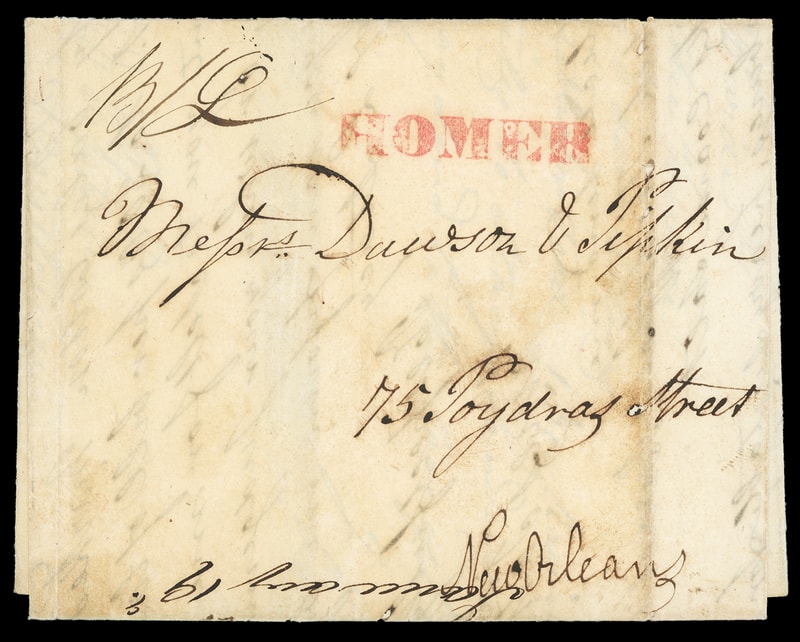 B/L
HOMER
Messrs. Dawson & Pipkin
75 Poydras Street
New Orleans
January 19